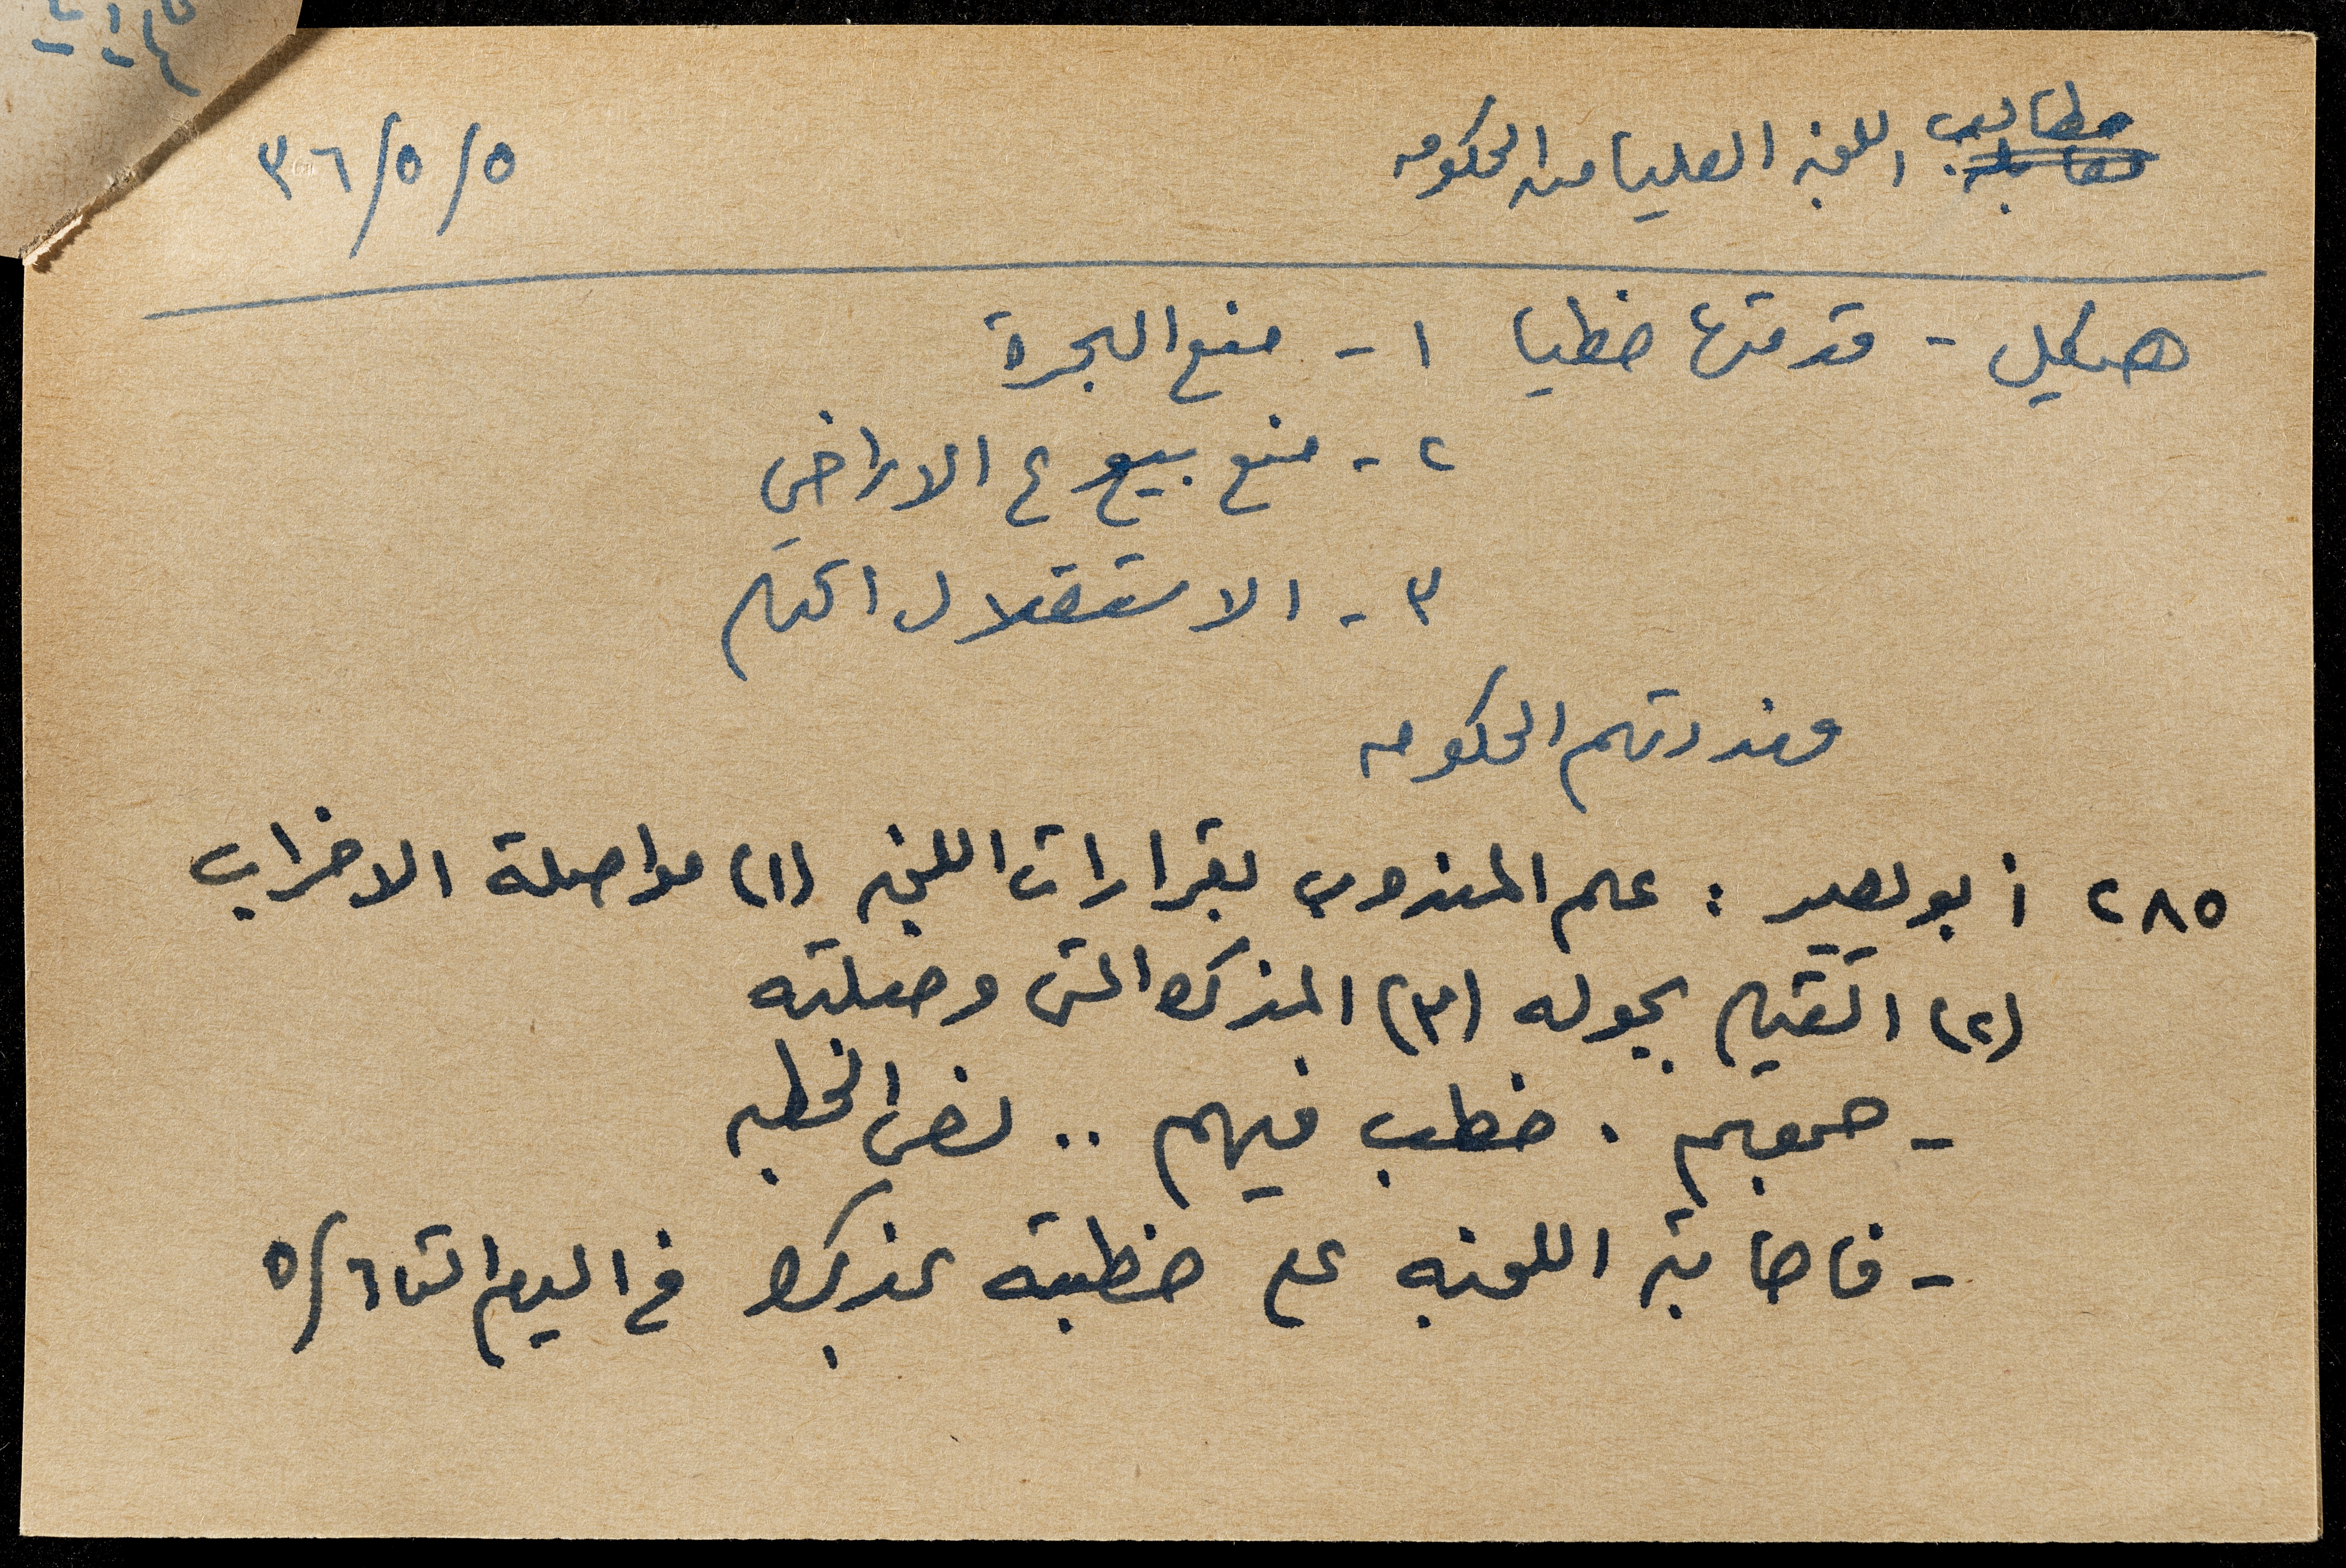 مطالب اللجنه العليا من الحكومه
٥/٥/٣٦
هيكل - قدمتها خطيا ١- منع الهجرة
٢- منع بيوع الاراضي
٣- الاستقلال التام
الحكومه
٢٨٥ أبو بصير : علم المندوب بقرارات اللجنه (١) مواصلة الاضراب
(٢) القيام بجوله (٣) المذكره التى وصلته
- جمعهم . خطب فيهم .. نص الخطبه
- فاجابته اللجنه على خطبته بمذكره في اليوم التا ٥/٦